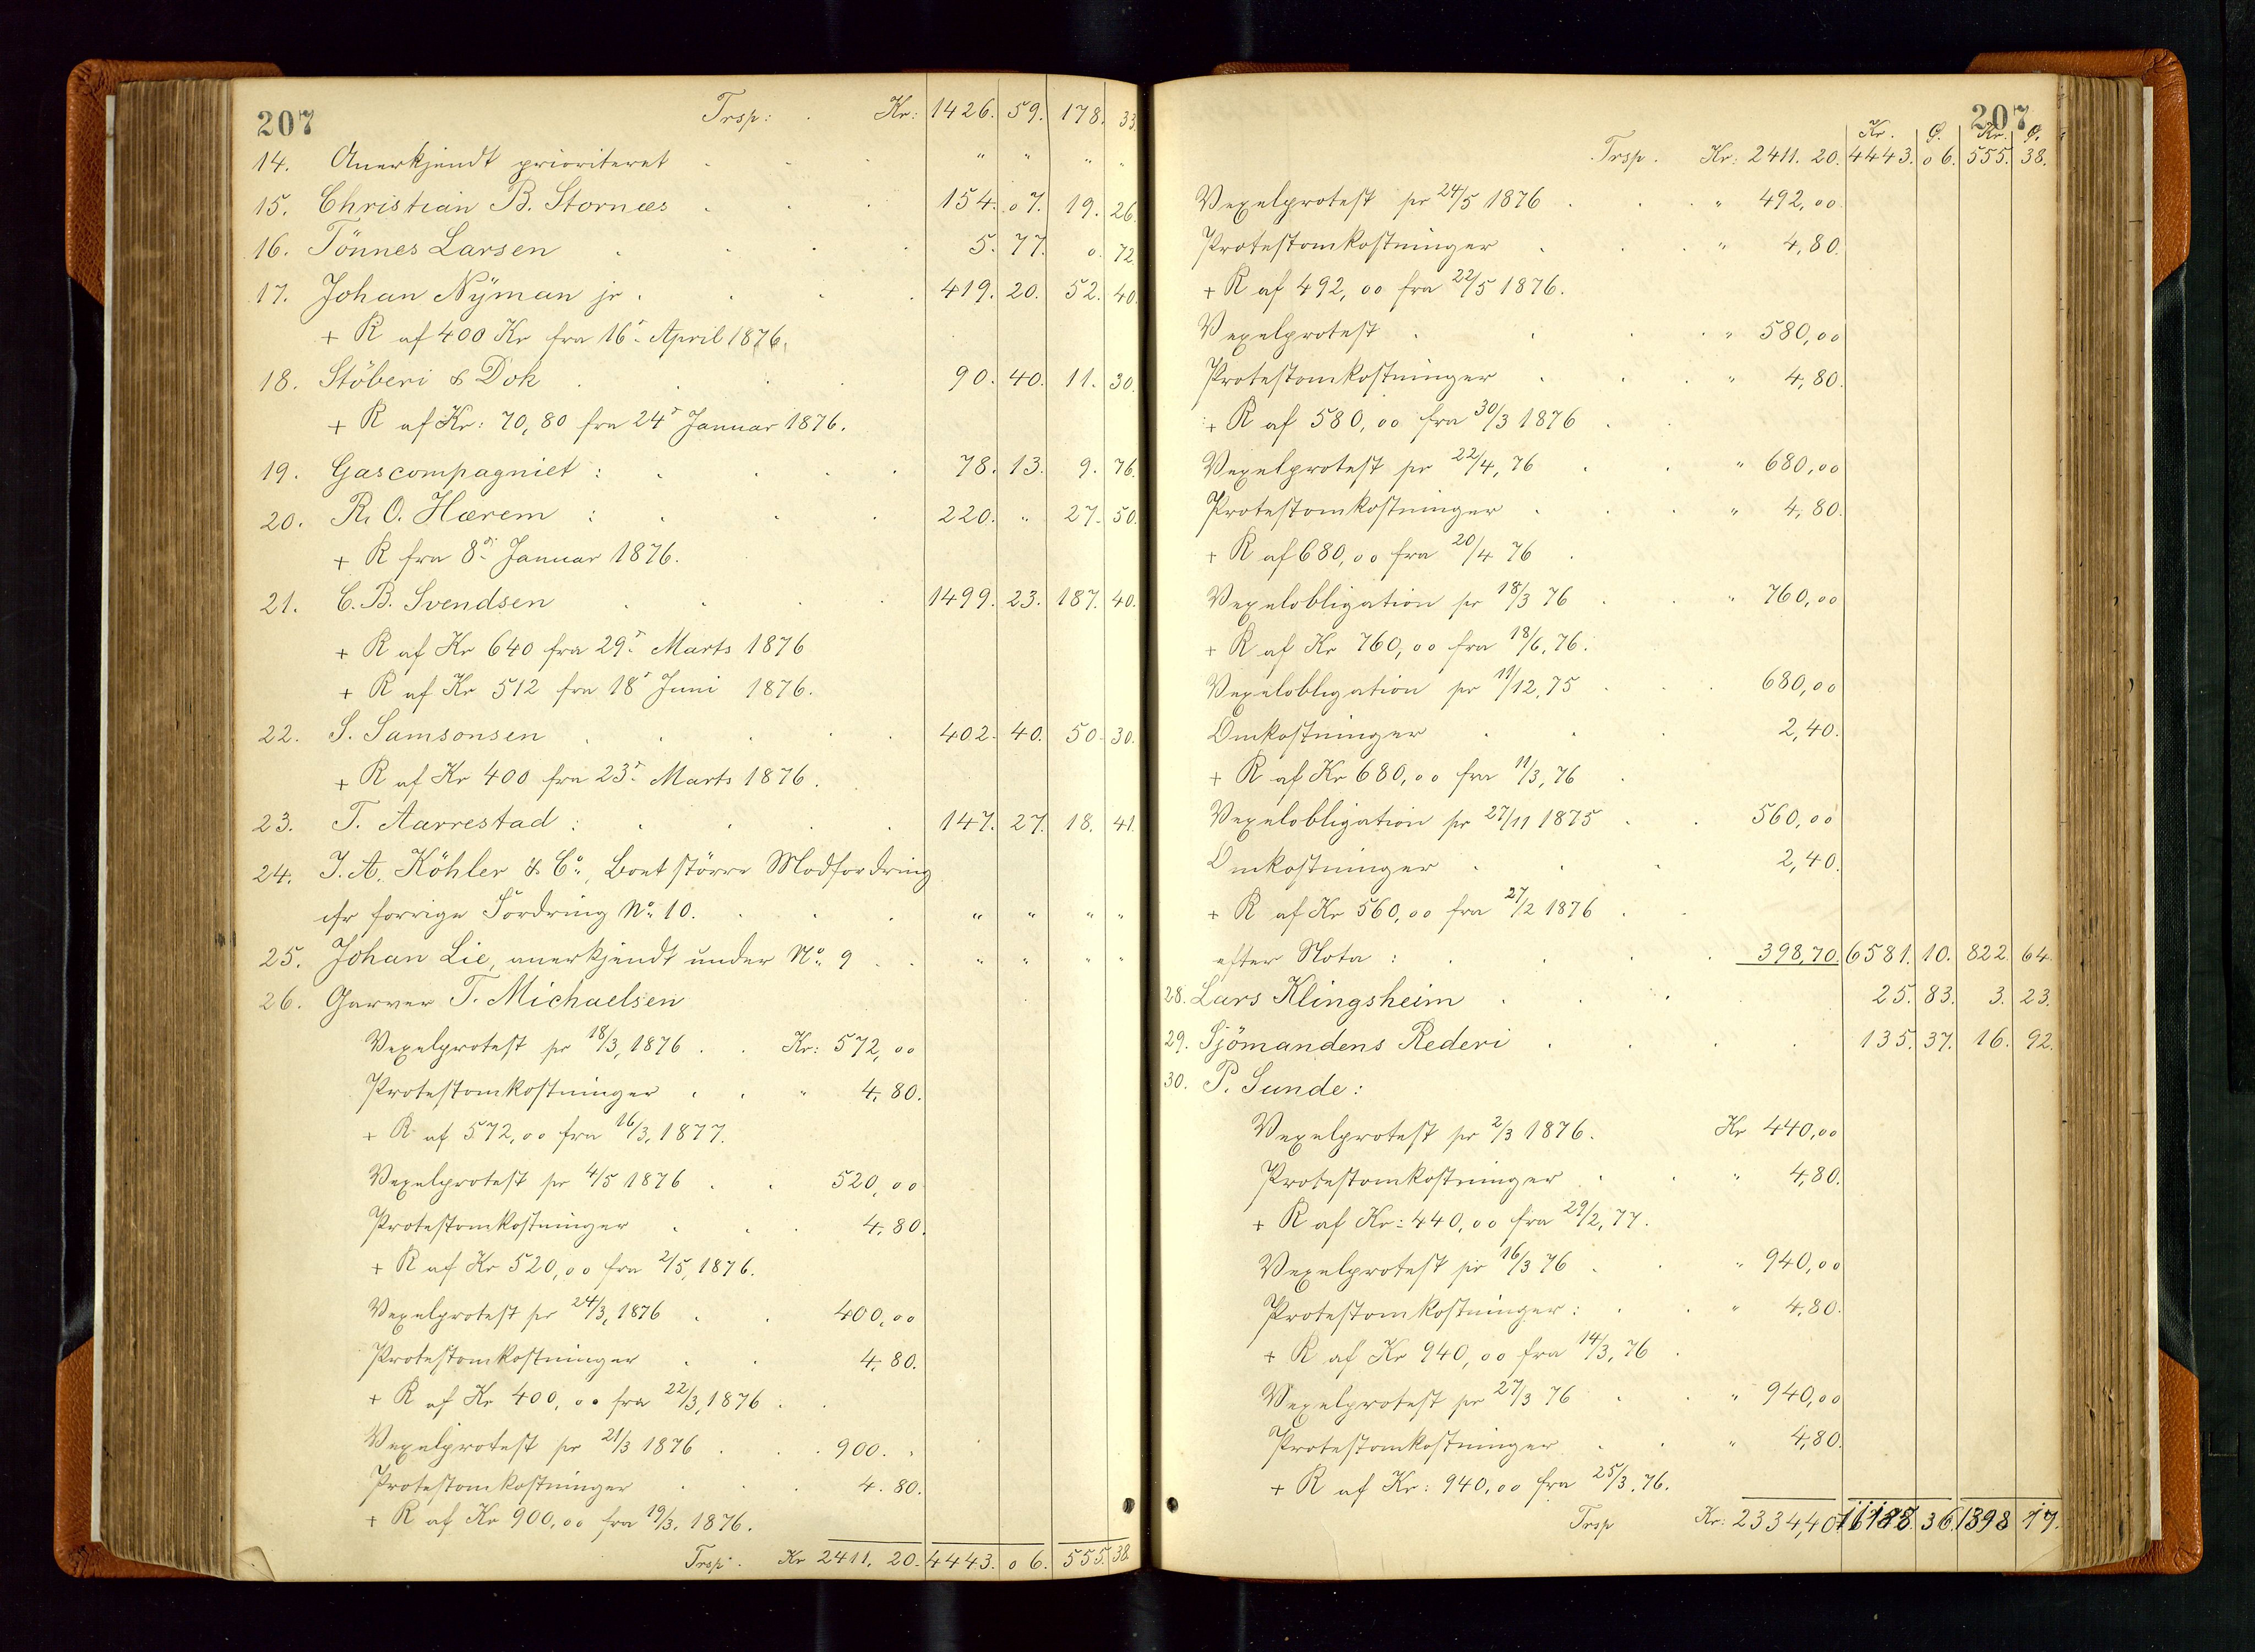 207
Trsp: . Kr: 1426. 59. 178. 33.
14. Anerkjendt prioriteret . . . " " " "
15. Christian B. Stornæs . . . 154. 07. 19. 26.
16. Tönnes Larsen . . . . 5. 77. 0. 72
17. Johan Nÿman jr . . . . 419. 20. 52. 40.
+ R af 400 Kr fra 16r April 1876.
18. Stöberi & Dok . . . . 90. 40. 11. 30.
+ R af Kr: 70,80 fra 24r Januar 1876.
19. Gascompagniet : . . . . 78. 13. 9. 76.
20. R. O. Hærem : . . . 220. " 27. 50.
+ R fra 8de Januar 1876.
21. C. B. Svendsen . . . . 1499. 23. 187. 40.
+ R af Kr 640 fra 29r Marts 1876
+ R af Kr 512 fra 18r Juni 1876.
22. S. Samsonsen . . . . . 402. 40. 50. 30.
+ R af Kr 400 fra 23r Marts 1876.
23. T. Aarrestad : . . . . 147. 27. 18. 41.
24. J. A. Köhler & Co, Boet större Modfordring
cfr forrige Fordring No 10. . . . " " " "
25. Johan Lie, anerkjendt under No 9 . . " " " "
26. Garver T. Michaelsen
Vexelprotest pr 18/3, 1876 . . Kr: 572,00
Protestomkostninger . . " 4,80.
+ R af 572,00 fra 16/3, 1877.
Vexelprotest pr 4/5 1876 . . 520,00
Protestomkostninger . . . 4,80.
+ R af Kr 520,00 fra 2/5, 1876.
Vexelprotest pr 24/3, 1876 . . 400,00
Protestomkostninger . . 4,80.
+ R af Kr 400,00 fra 22/3, 1876 . .
Vexelprotest pr 21/3 1876 . . . 900. "
Protestomkostninger . . . 4.80.
+ R af Kr 900,00 fra 19/3. 1876.
Trsp. Kr 2411. 20. 4443. 06. 555. 38
207
Kr. Ø. Kr. Ø.
Trsp. Kr: 2411. 20. 4443. 06. 555. 38.
Vexelprotest pr 24/5 1876 . . . " 492,00.
Protestomkostninger . . . " 4,80.
+ R af 492,00 fra 22/5 1876.
Vexelprotest . . . . " 580,00
Protestomkostninger . . . " 4,80.
+ R af 580,00 fra 30/3 1876 . .
Vexelprotest pr 22/4, 76 . . " 680,00
Protestomkostninger . . . " 4,80.
+ R af 680,00 fra 20/4 76 .
Vexelobligation pr 18/3 76 . . " 760,00
+ R af Kr 760,00 fra 18/6, 76.
Vexelobligation pr 11/12, 75 . . 680,00
Omkostninger . . . 2,40.
+ R af Kr 680,00 fra 11/3, 76 .
Vexelobligation pr 27/11 1875 . . 560,00
Omkostninger . . . 2,40.
+ R af Kr 560,00 fra 27/2 1876 . .
efter Nota : . . . . 398,70. 6581. 10. 822. 64.
28. Lars Klingsheim . . . 25. 83. 3. 23.
29. Sjömandens Rederi . . . . 135. 37. 16. 92.
30. P. Sunde:
Vexelprotest pr 2/3 1876. Kr 440,00
Protestomkostninger . . " 4,80.
+ R af Kr: 440,00 fra 29/2, 77.
Vexelprotest pr 16/3 76 . . " 940,00
Protestomkostninger : . . " 4,80.
+ R af Kr 940,00 fra 14/3, 76 .
Vexelprotest pr 27/3 76 . . " 940,00
Protestomkostninger . . " 4,80.
+ R af Kr: 940,00 fra 25/3. 76.
Trsp Kr: 2334,40 36. 1398 17.